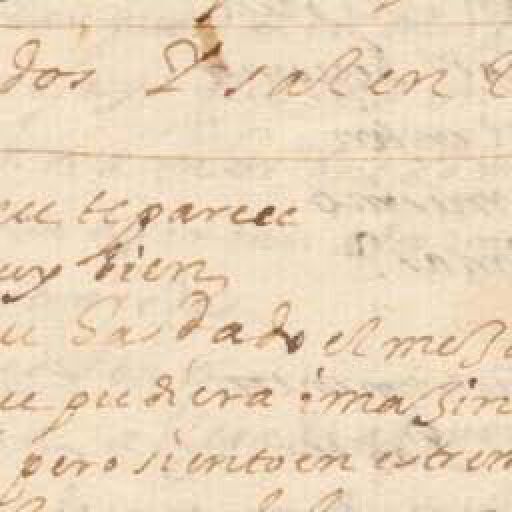 dos Y salen
ue te parece
uy bien
u has dado el mexo
ue pudiera imaxin
pero siento en extrem